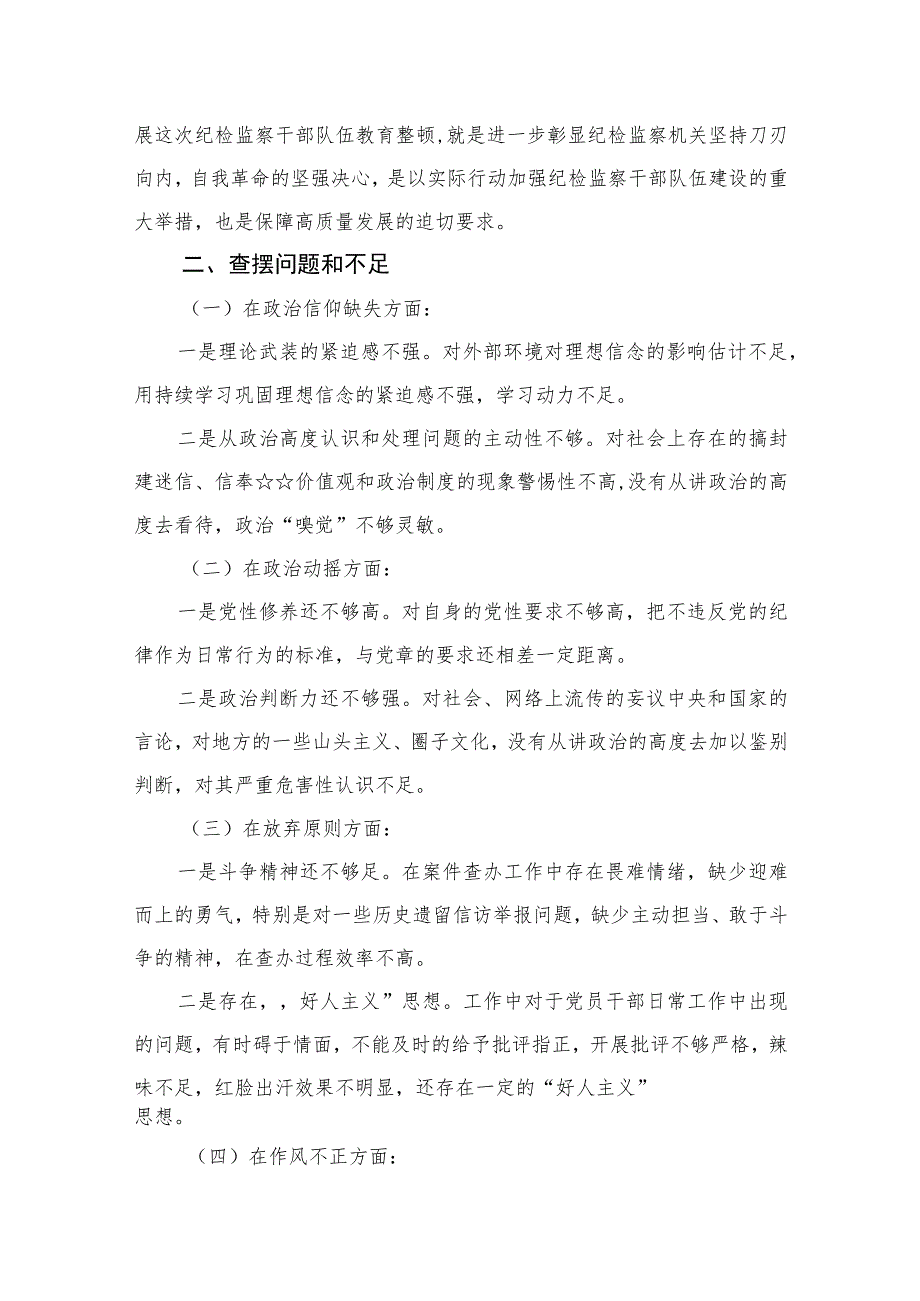 展这次纪检监察干部队伍教育整顿,就是进一步彰显纪检监察机关坚持刀刃
向内，自我革命的坚强决心，是以实际行动加强纪检监察干部队伍建设的重
大举措，也是保障高质量发展的迫切要求。
二、查摆问题和不足
（一）在政治信仰缺失方面：
一是理论武装的紧迫感不强。对外部环境对理想信念的影响估计不足，
用持续学习巩固理想信念的紧迫感不强，学习动力不足。
二是从政治高度认识和处理问题的主动性不够。对社会上存在的搞封
建迷信、信奉☆☆价值观和政治制度的现象警惕性不高,没有从讲政治的高
度去看待，政治“嗅觉”不够灵敏。
（二）在政治动摇方面：
一是党性修养还不够高。对自身的党性要求不够高，把不违反党的纪
律作为日常行为的标准，与党章的要求还相差一定距离。
二是政治判断力还不够强。对社会、网络上流传的妄议中央和国家的
言论，对地方的一些山头主义、圈子文化，没有从讲政治的高度去加以鉴别
判断，对其严重危害性认识不足。
（三）在放弃原则方面：
一是斗争精神还不够足。在案件查办工作中存在畏难情绪，缺少迎难
而上的勇气，特别是对一些历史遗留信访举报问题，缺少主动担当、敢于斗
争的精神，在查办过程效率不高。
二是存在，，好人主义”思想。工作中对于党员干部日常工作中出现
的问题，有时碍于情面，不能及时的给予批评指正，开展批评不够严格，辣
味不足，红脸出汗效果不明显，还存在一定的“好人主义”
思想。
（四）在作风不正方面：